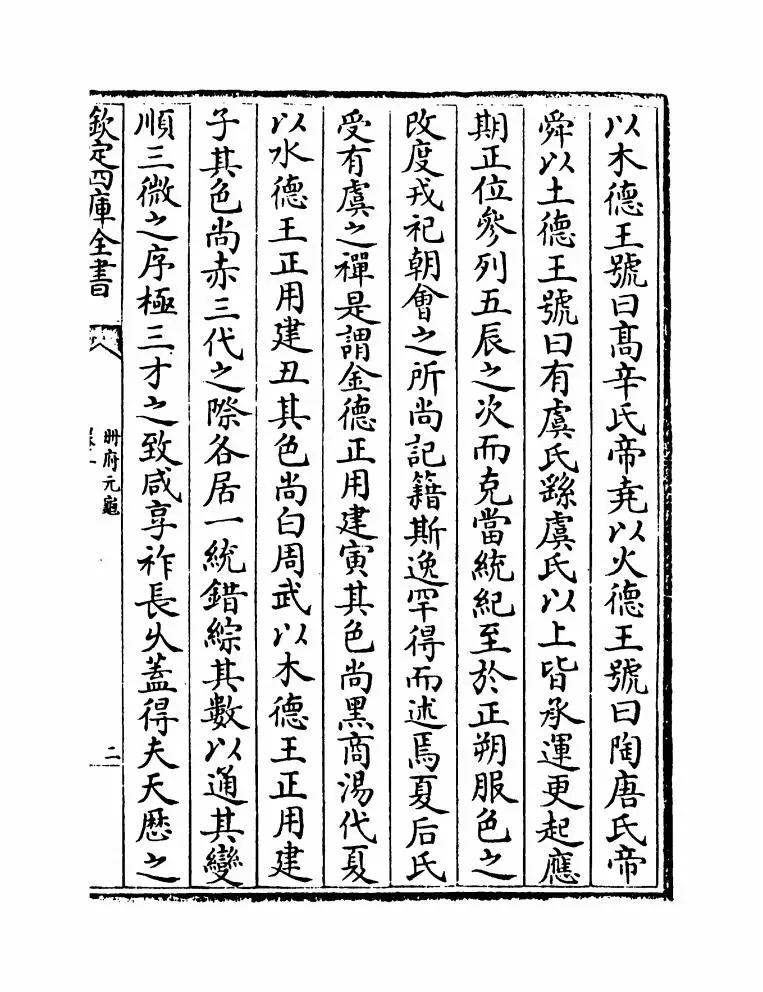 以木德王號曰髙辛氏帝堯以火德王號曰陶唐氏帝
舜以土德王號曰有虞氏繇虞氏以上皆承運更起應
期正位參列五辰之次而克當統紀至於正朔服色之
改度戎祀朝㑹之所尚記籍斯逸罕得而述焉夏后氏
受有虞之禪是謂金德正用建寅其色尚黑商湯代夏
以水德王正用建丑其色尚白周武以木德王正用建
子其色尚赤三代之際各居一統錯綜其數以通其變
順三微之序極三才之致咸享祚長乆蓋得夫天厯之
欽定四庫全書
冊府元龜
二